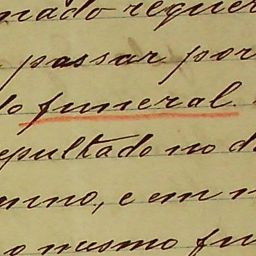 nado requer
passar por
do funeral
epultado no d
nno, e em
o mesmo fu